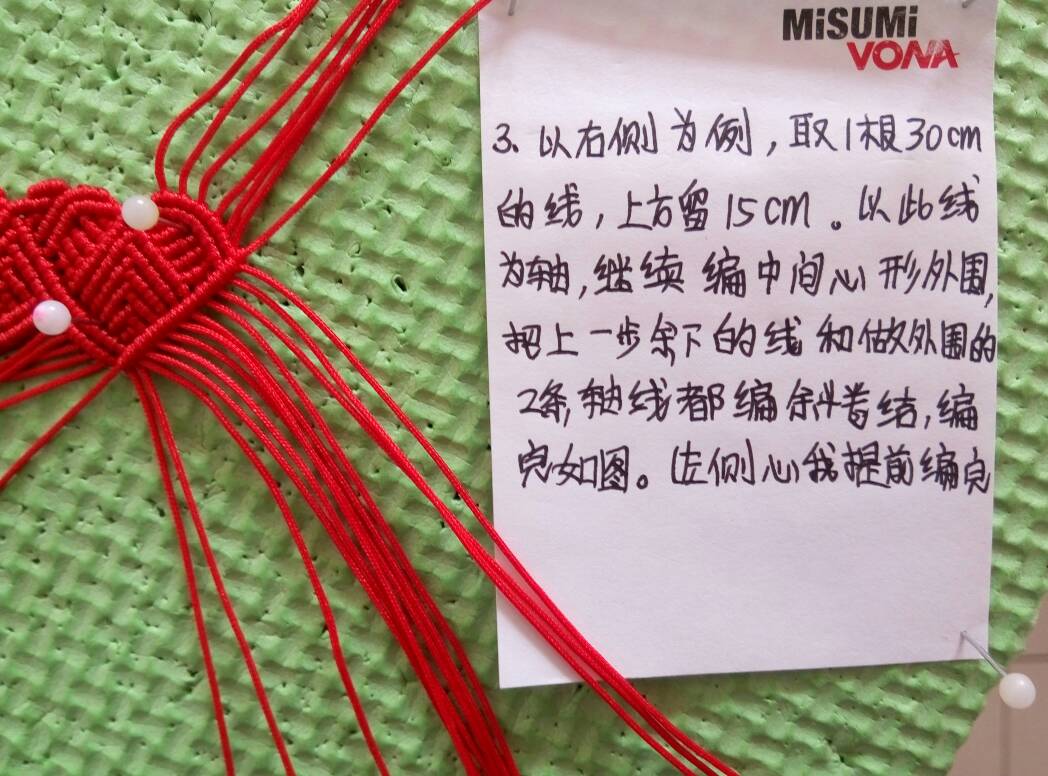 MiSUMi
VONA
3、以右侧为例，取1根30cm
的线，上方留15cm。以此线
为轴，继续编中间心形外围，
把上一步余下的线和做外围的
2条轴线都编斜卷结，编
完如图。左侧心我提前编完